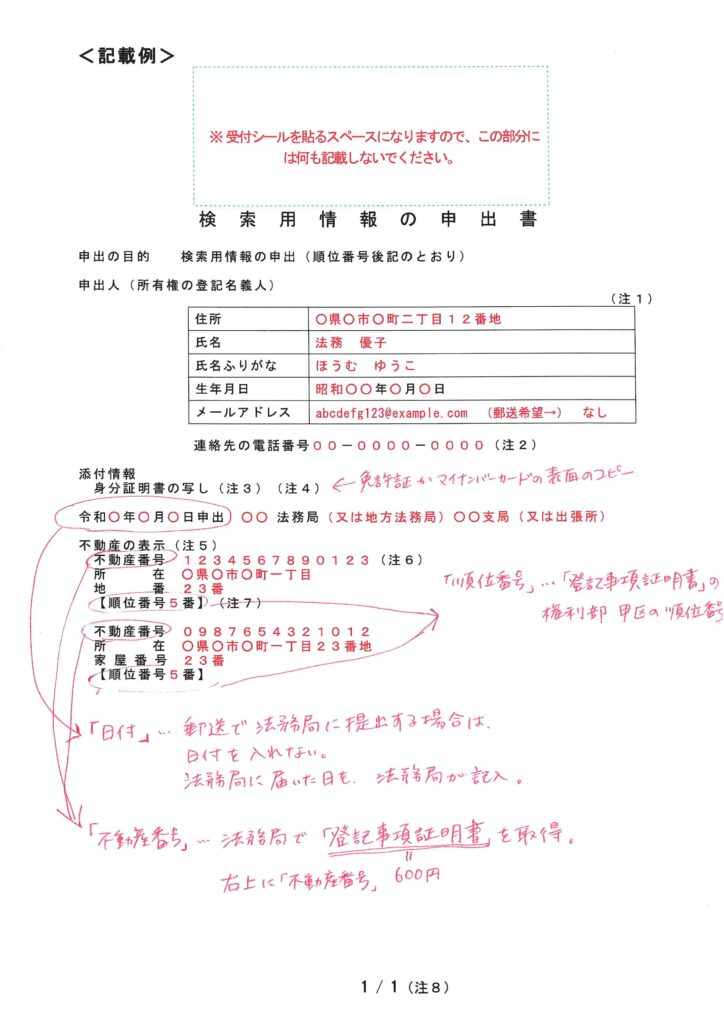 ＜記載例＞
※ 受付シールを貼るスペースになりますので、この部分に
は何も記載しないでください。
検索用情報の申出書
申出の目的　検索用情報の申出（順位番号後記のとおり）
申出人（所有権の登記名義人）
（注１）
住所　〇県〇市〇町二丁目１２番地
氏名　法務　優子
氏名ふりがな　ほうむ　ゆうこ
生年月日　昭和〇〇年〇月〇日
メールアドレス　abcdefg123@example.com　（郵送希望→）　なし
連絡先の電話番号００－００００－００００（注２）
添付情報
身分証明書の写し（注３）（注４）　←免許証かマイナンバーカードの表面のコピー
令和〇年〇月〇日申出　〇〇 法務局（又は地方法務局）〇〇支局（又は出張所）
不動産の表示（注５）
不動産番号　１２３４５６７８９０１２３（注６）
所　　在　〇県〇市〇町一丁目
地　　番　２３番
【順位番号５番】（注７）
「順位番号」…「登記事項証明書」の
権利部 甲区の順位番号
不動産番号　０９８７６５４３２１０１２
所　　在　〇県〇市〇町一丁目２３番地
家屋番号　２３番
【順位番号５番】
「日付」… 郵送で法務局に提出する場合は、
日付を入れない。
法務局に届いた日を、法務局が記入。
「不動産番号」… 法務局で「登記事項証明書」を取得。
＝
右上に「不動産番号」　600円
1 / 1（注８）